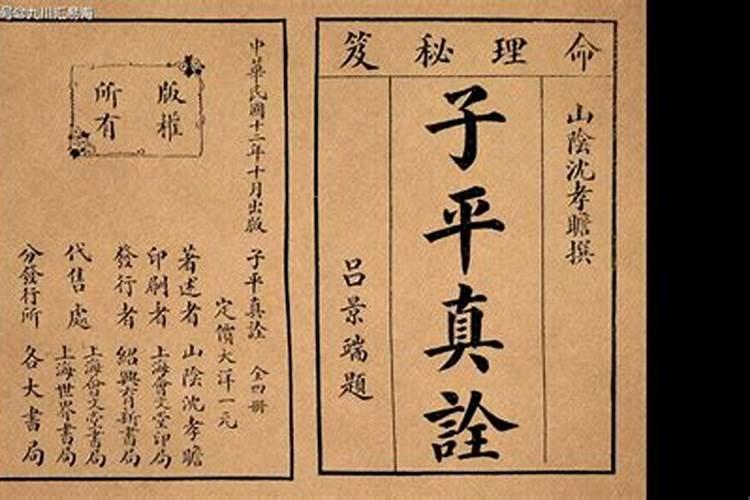 命理秘笈
山陰沈孝瞻撰
子平真詮
呂景端題
中華民國十二年十月出版
子平真詮 全四册
定價大洋一元
版權
所有
著述者 山陰沈孝瞻
印刷者 上海會文堂印局
發行者 紹興育新書局
代售處 上海會文堂書局
上海世界書局
分發行所 各大書局